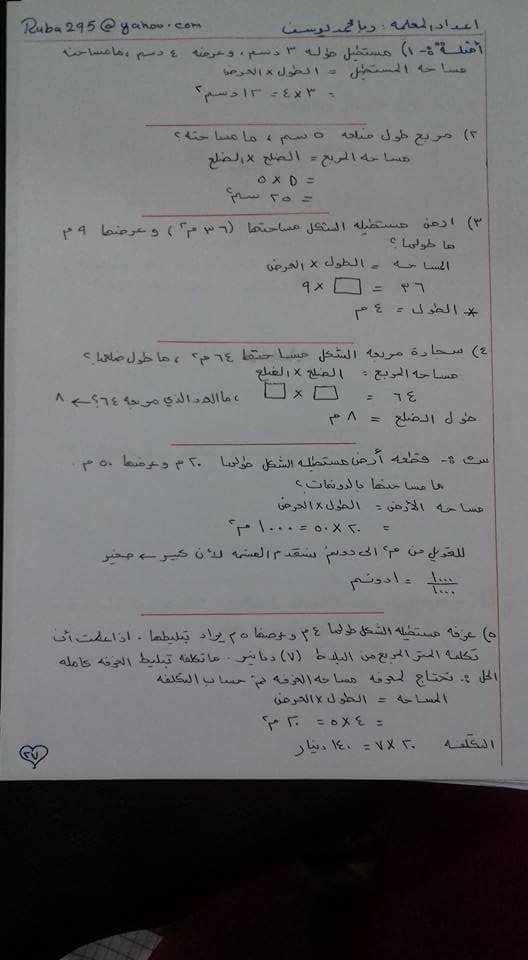 اعداد المعلمة : ربا محمد يوسف Ruba295@yahoo.com
أمثلة :- ١) مستطيل طوله ٣ دسم ، وعرضه ٤ دسم ، ما مساحته
مساحه المستطيل = الطول × العرض
= ٣ × ٤ = ١٢ دسم٢
٢) مربع طول ضلعه ٥ سم ، ما مساحته ؟
مساحه المربع = الضلع × الضلع
= ٥ × ٥
= ٢٥ سم٢
٣) ارض مستطيله الشكل مساحتها (٣٦ م٢) وعرضها ٩ م
ما طولها ؟
المساحه = الطول × العرض
٣٦ = □ × ٩
* الطول = ٤ م
٤) سجادة مربعه الشكل مساحتها ٦٤ م٢ ، ما طول ضلعها ؟
مساحه المربع = الضلع × الضلع
٦٤ = □ × □ ، ما العدد الذي مربعه ٦٤ ؟ ← ٨
طول الضلع = ٨ م
س :- قطعه أرض مستطيله الشكل طولها ٢٠ م وعرضها ٥٠ م
ما مساحتها بالدونمات ؟
مساحه الأرض = الطول × العرض
= ٢٠ × ٥٠ = ١٠٠٠ م٢
للتحويل من م٢ الى دونم نستخدم القسمه لأن كبير ← صغير
١٠٠٠/١٠٠٠ = ١ دونم
٥) غرفه مستطيله الشكل طولها ٤ م وعرضها ٥ م يراد تبليطها ، اذا علمت أن
تكلفه المتر المربع من البلاط (٧) دنانير . ما تكلفه تبليط الغرفه كامله
الحل :- نحتاج لمعرفه مساحه الغرفه ثم حساب التكلفه
المساحه = الطول × العرض
= ٤ × ٥ = ٢٠ م٢
التكلفه ٢٠ × ٧ = ١٤٠ دينار
٢٧